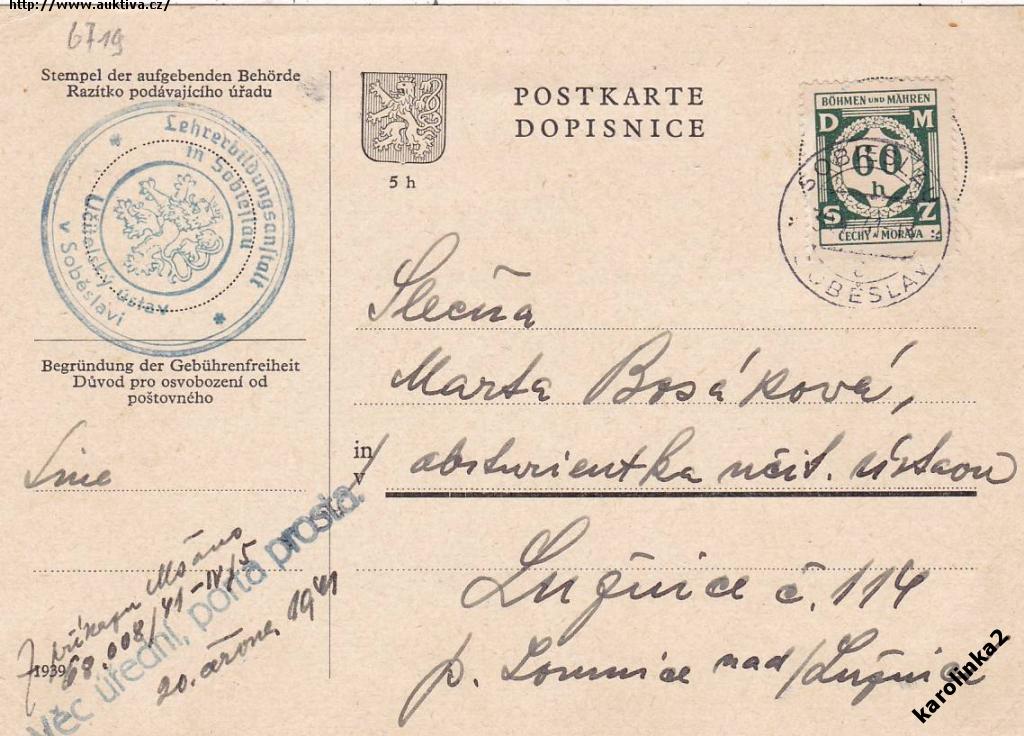 http://www.auktiva.cz/
6719
Stempel der aufgebenden Behörde
Razítko podávajícího úřadu
Lehrerbildungsanstalt
in Sobieslau
Učitelský ústav
v Soběslavi
POSTKARTE
DOPISNICE
5 h
BÖHMEN UND MÄHREN
D M
60
h
S Z
ČECHY A MORAVA
SOBIESLAU
SOBĚSLAV
Begründung der Gebührenfreiheit
Důvod pro osvobození od
poštovného
Slečna
Marta Bosáková,
in
v
absturientka učit. ústavu
Lužnice č. 114
p. Lomnice nad/Lužnicí
Věc úřední, porta prostá.
Z příkazu MŠANO
68.008/41-IV/5
20. 1941
1939
karolinka2